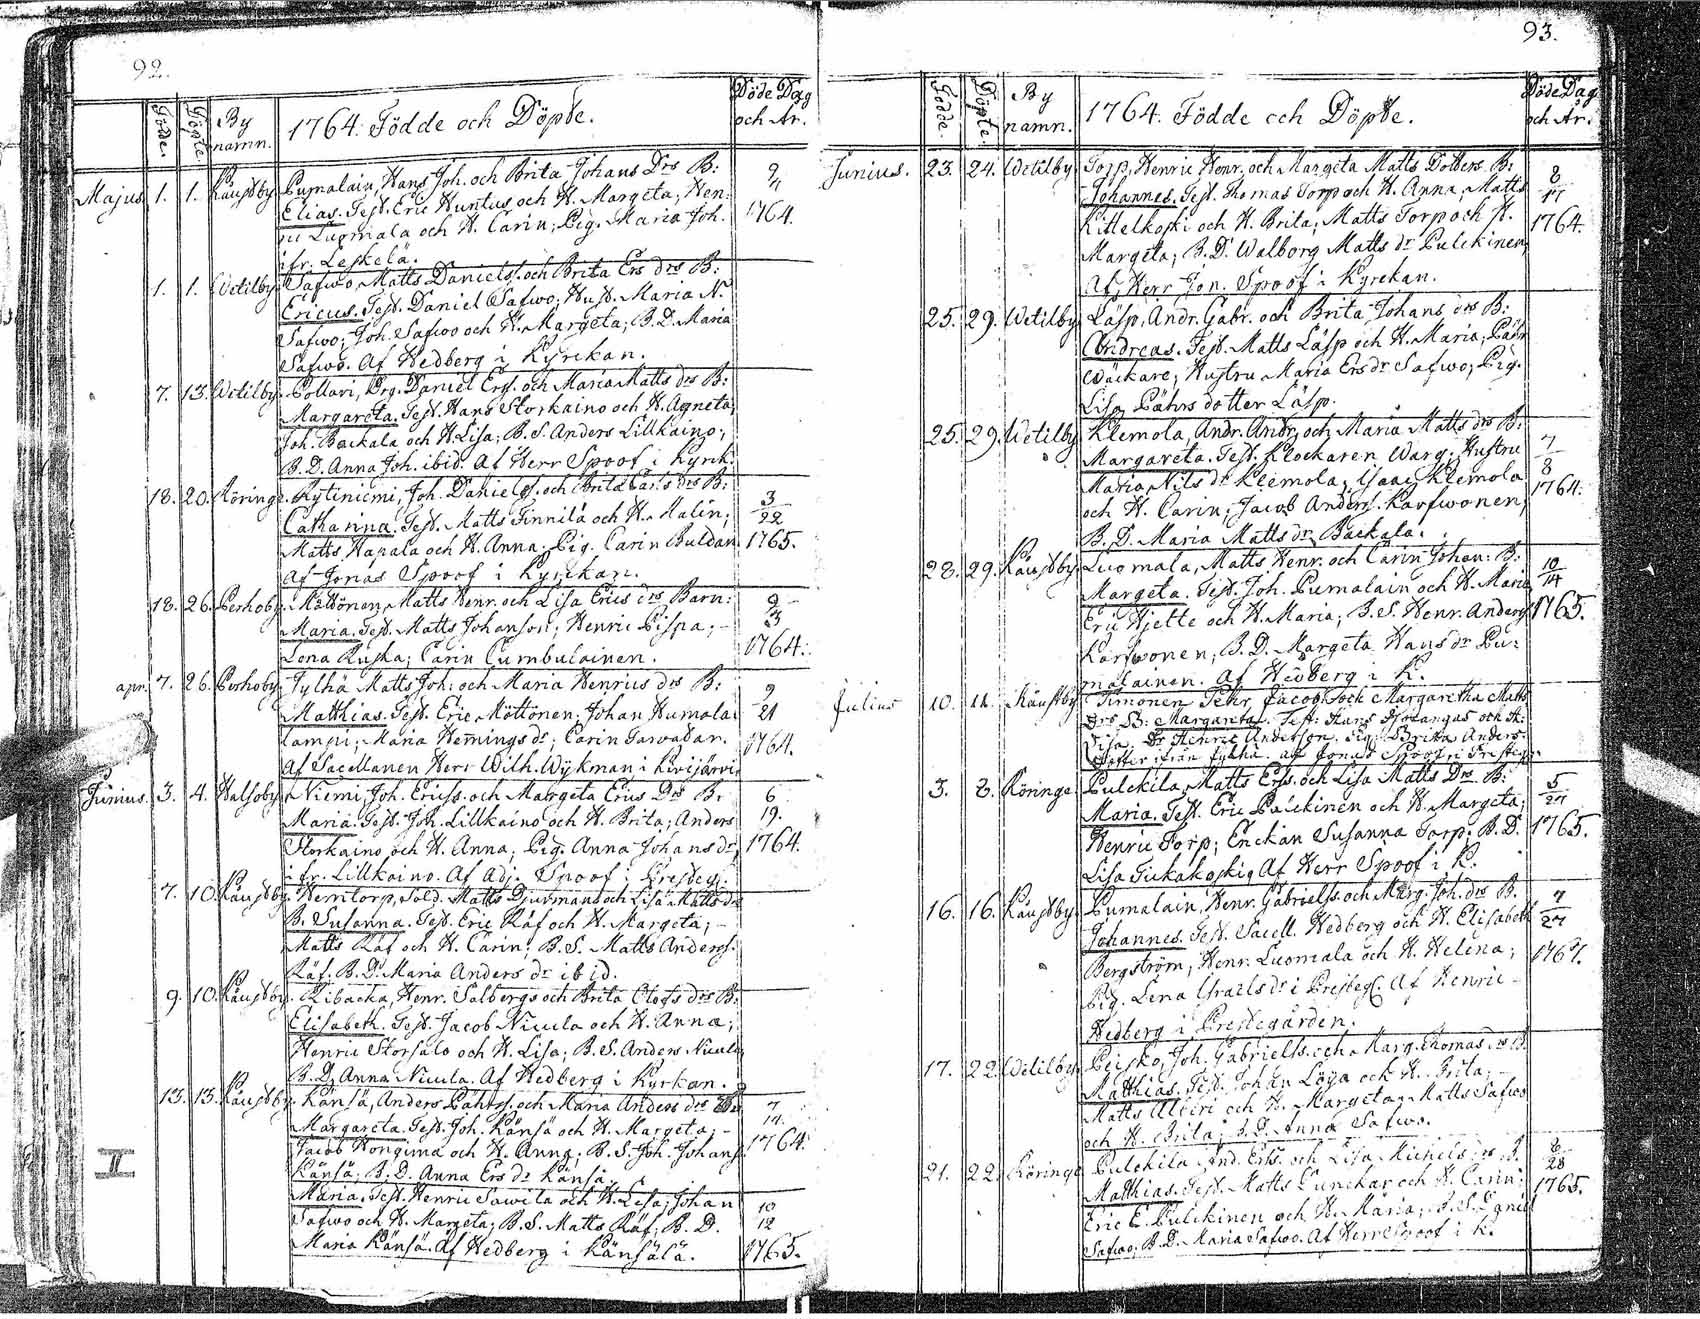 92.
Födde.
Döpte.
By namn.
1764. Födde och Döpte.
Döde Dag och År.
Majus 1. 1. Käustby. Pumalain, Hans Joh. och Brita Johans Drs B:
Elias. Test. Eric Huntus och H. Margeta; Hen:
ric Luomala och H. Carin; Pig. Maria Joh.
ifr. Leskelä.
9/4 1764.
1. 1. Wetilby. Safwo, Matts Daniels. och Brita Ers drs B:
Ericus. Test. Daniel Safwo; Hust. Maria N.
Safwo; Joh. Safwo och H. Margeta; B.D. Maria
Safwo. Af Hedberg i Kyrckan.
7. 13. Wetilby. Pollari, Drg. Daniel Ers. och Maria Matts drs B:
Margareta. Test. Hans Storkaino och H. Agneta;
Joh. Backala och H. Lisa; B.S. Anders Lillkaino;
B.D. Anna Joh. ibid. Af Herr Spoof i Kyrk.
18. 20. Röringe. Kytiniemi, Joh. Daniels. och Brita Carls drs B:
Catharina. Test. Matts Finnilä och H. Malin;
Matts Hapala och H. Anna; Pig. Carin Buldan
af Jonas Spoof i Kyrckan.
3/22 1765.
18. 26. Perhoby. Möttönen, Matts Henr. och Lisa Erics drs Barn:
Maria. Test. Matts Johanson; Henric Pispa;
Lena Ruska; Carin Cumbulainen.
9/3 1764.
apr. 7. 26. Perhoby. Jylhä Matts Joh. och Maria Henrics drs B:
Matthias. Test. Eric Möttönen; Johan Humala
lampi; Maria Hemings dr; Carin Tarvabar.
Af Sacellanen Herr Wilh. Wijkman i Kivijärvi.
9/21 1764.
Junius. 3. 4. Halsoby. Niemi, Joh. Ericss. och Margeta Erics Drs B:
Maria. Test. Joh. Lillkaino och H. Brita; Anders
Storkaino och H. Anna; Pig. Anna Johans dr,
ifr. Lillkaino. Af Adj. Spoof i Presteg.
6/19. 1764.
7. 10. Käustby. Herritorp, Sold. Matts Djurman och Lisa Matts dr
B. Susanna. Test. Eric Räf och H. Margeta;
Matts Räf och H. Carin; B.S. Matts Anders.
Räf. B.D. Maria Anders dr ibid.
9. 10. Käustby. Ribacka, Henr. Salbergs och Brita Olofs drs B:
Elisabeth. Test. Jacob Nicula och H. Anna;
Henric Storsalo och H. Lisa; B.S. Anders Nicula
B.D. Anna Nicula. Af Hedberg i Kyrkan.
13. 13. Käustby. Känsä, Anders Pährss. och Maria Anders drs
Margareta. Test. Joh. Känsä och H. Margeta;
Jacob Hongima och H. Anna; B.S. Joh. Johans.
Känsä; B.D. Anna Ers dr Känsä.
7/14. 1764.
II
Maria. Test. Henric Sawila och H. Lisa; Johan
Safwo och H. Margeta; B.S. Matts Räf; B.D.
Maria Känsä. Af Hedberg i Känsälä.
10/12 1765.
93.
Födde.
Döpte.
By namn.
1764. Födde och Döpte.
Döde Dag och År.
Junius. 23. 24. Wetilby. Torp, Henric Henr. och Margeta Matts Dotters B:
Johannes. Test. Thomas Torp och H. Anna; Matts
Kittelkoski och H. Brita; Matts Torp och H.
Margeta; B.D. Walborg Matts dr Pulckinen,
Af Herr Jon. Spoof i Kyrckan.
8/17 1764.
25. 29. Wetilby. Läsp, Andr. Gabr. och Brita Johans drs B:
Andreas. Test. Matts Läsp och H. Maria; Pähr
Wäckare; Hustru Maria Ers dr Safwo; Pig.
Lisa Pährs dotter Läsp.
25. 29. Wetilby. Klemola, Andr. Andr. och Maria Matts drs B:
Margareta. Test. Klockaren Warg; Hustru
Maria Nils dr Klemola; Isaac Klemola
och H. Carin; Jacob Anders. Karfwonen;
B.D. Maria Matts dr Backala.
7/8 1764.
28. 29. Käustby. Luomala, Matts Henr. och Carin Johan: B:
Margeta. Test. Joh. Pumalain och H. Maria
Eric Hjette och H. Maria; B.S. Henr. Anders.
Karfwonen; B.D. Margeta Hans dr Pu:
malainen. Af Hedberg i K.
10/14 1765.
Julius 10. 11. Käustby Timonen Pehr Jacobs. ock Margaretha Matts
Drs B: Margareta. Test: Hans och H:
Lisa. Dr Henric Anderson. Pig. Britta Anders
dotter ifrån Jylhä. af Jonas Spoof i Presteg.
3. 8. Röringe. Pulckila, Matts Ers. och Lisa Matts Drs B:
Maria. Test. Eric Pulckinen och H. Margeta;
Henric Torp; Enckan Susanna Torp; B.D.
Lisa Tuckakoski. Af Herr Spoof i K.
5/27 1765.
16. 16. Käustby. Pumalain, Henr. Gabrielss. och Marg. Joh. drs B.
Johannes. Test. Sacell. Hedberg och H. Elisabeth
Bergström; Henr. Luomala och H. Helena;
Pig. Lena Israels dr i Presteg. Af Henric
Hedberg i Prestegården.
7/27
17. 22. Wetilby. Peisko, Joh. Gabrielss. och Marg. Thomas drs B
Matthias. Test. Johan Löija och H. Brita;
Matts Alberi och H. Margeta; Matts Safwo
och H. Brita; B.D. Anna Safwo.
21. 22. Röringe Pulckila And. Ers. och Lisa Michels drs B.
Matthias. Test. Matts Tunckar och H. Carin;
Eric E. Pulckinen och H. Maria; B.S. Daniel
Safwo; B.D. Maria Safwo. Af Herr Spoof i K.
6/28 1765.